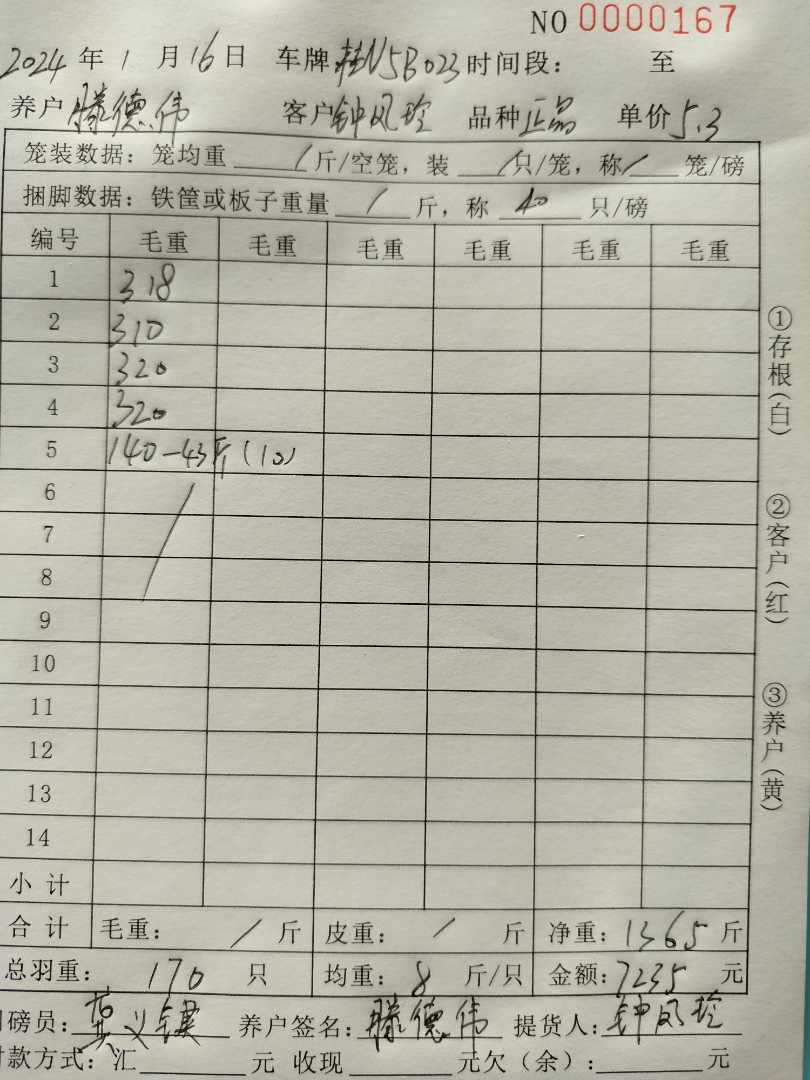 NO 0000167
2024 年 1 月 16 日 车牌 桂N5B023 时间段: 至
养户 滕德伟 客户 钟凤玲 品种 正品 单价 5.3
笼装数据: 笼均重 / 斤/空笼, 装 / 只/笼, 称 / 笼/磅
捆脚数据: 铁筐或板子重量 / 斤, 称 40 只/磅
编号 毛重 毛重 毛重 毛重 毛重 毛重
1 318
2 310
3 320
4 320
5 140-43斤(10)
6
7
8
9
10
11
12
13
14
小计
合计 毛重: / 斤 皮重: / 斤 净重: 1365 斤
总羽重: 170 只 均重: 8 斤/只 金额: 7235 元
磅员: 莫义键 养户签名: 滕德伟 提货人: 钟凤玲
款方式: 汇 元 收现 元欠(余): 元
①存根(白)
②客户(红)
③养户(黄)